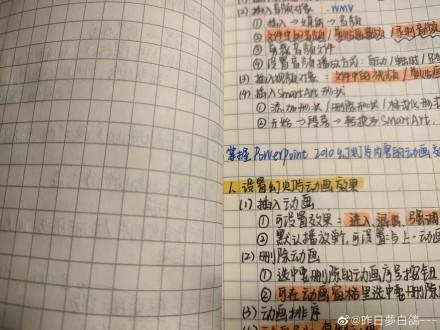 (2) 插入音频对象: .WMV
① 插入→媒体→音频
② 文件中的音频/剪贴画音频/录制音频
③ 音频文件
④ 设置音频播放方式: 自动/单击时/
(3) 插入视频对象: 文件中的视频/
(4) 插入SmartArt 形状
① 添加形状/删除形状/
② 开始→段落→转换为SmartArt.
掌握PowerPoint 2010幻灯片内容的动画效
1. 设置幻灯片动画效果
(1) 插入动画
① 可设置效果: 进入 退出、强调
② 默认播放 可设置: 与上一动画
(2) 删除动画
① 选中要删除的动画序号按钮
② 可在动画窗格里选中要删除
(3) 动画排序
@昨日夢白鴿---